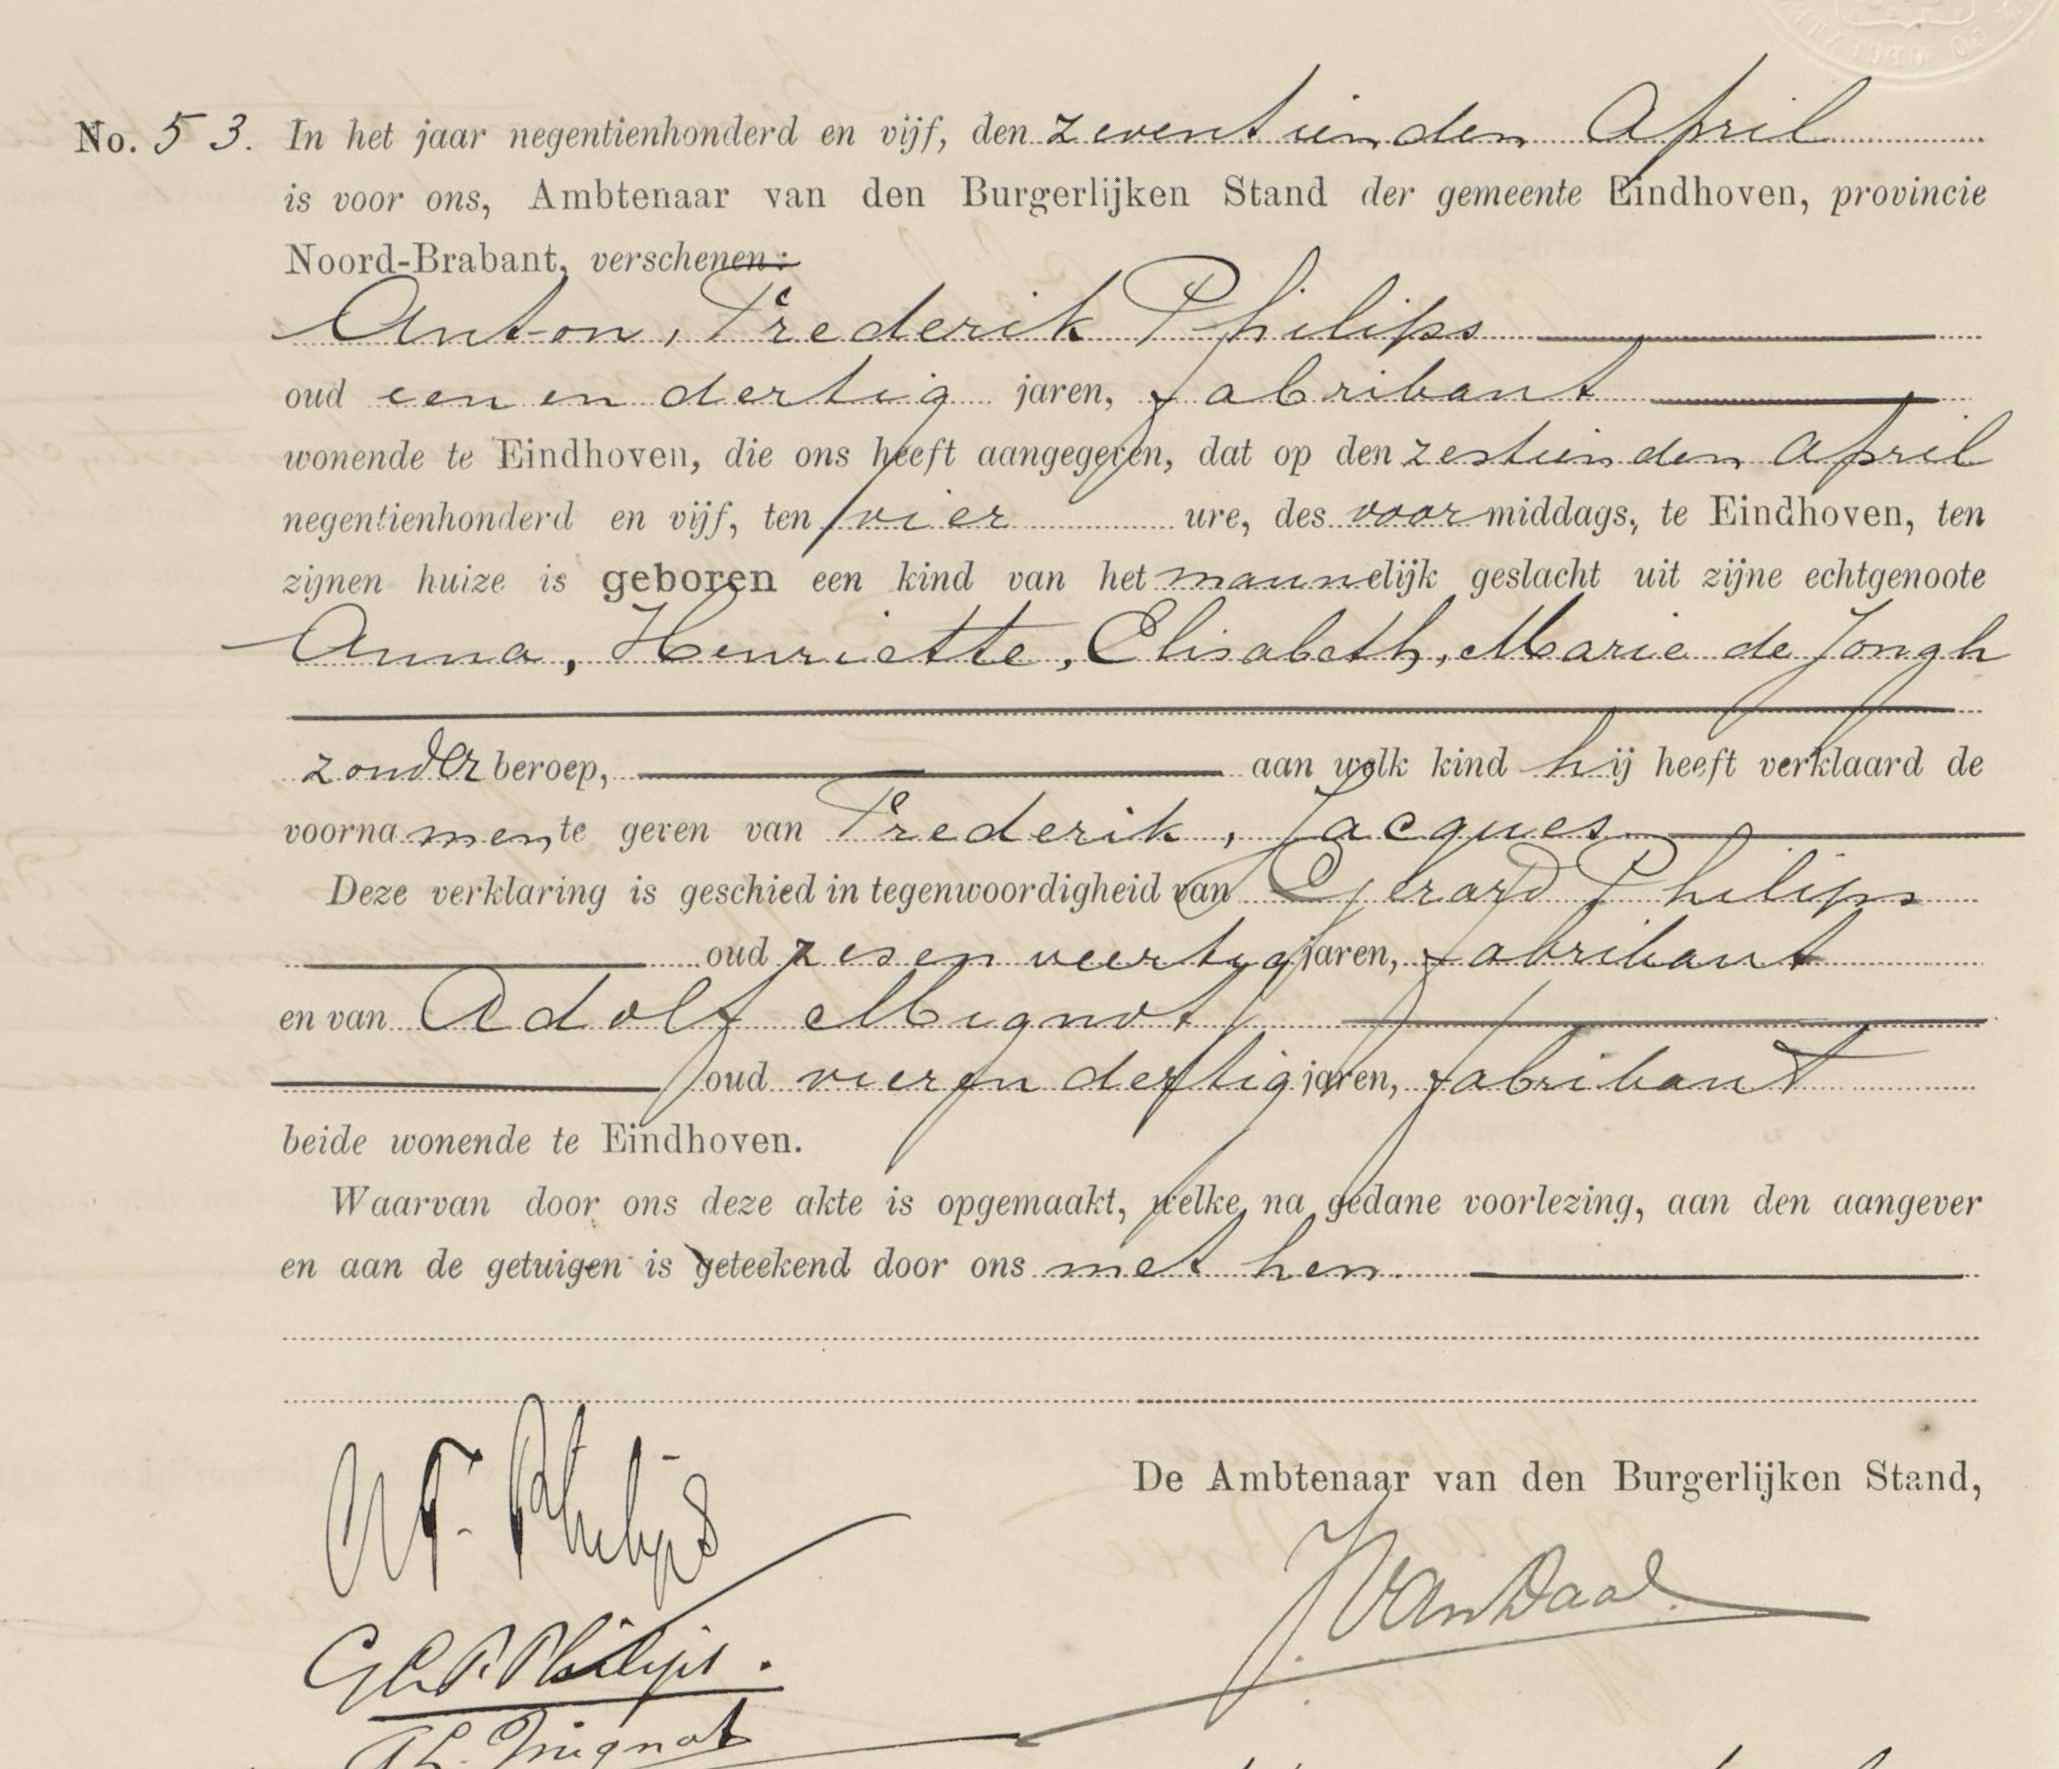 No. 53. In het jaar negentienhonderd en vijf, den zeventienden April
is voor ons, Ambtenaar van den Burgerlijken Stand der gemeente Eindhoven, provincie
Noord-Brabant, verschenen:
Anton, Frederik Philips
oud een en dertig jaren, fabrikant
wonende te Eindhoven, die ons heeft aangegeven, dat op den zestienden April
negentienhonderd en vijf, ten vier ure, des voormiddags, te Eindhoven, ten
zijnen huize is geboren een kind van het mannelijk geslacht uit zijne echtgenoote
Anna, Henriette, Elisabeth, Marie de Jongh
zonder beroep, aan welk kind hij heeft verklaard de
voornamen te geven van Frederik, Jacques
Deze verklaring is geschied in tegenwoordigheid van Gerard Philips
oud zes en veertig jaren, fabrikant
en van Adolf Mignot
oud vier en dertig jaren, fabrikant
beide wonende te Eindhoven.
Waarvan door ons deze akte is opgemaakt, welke, na gedane voorlezing, aan den aangever
en aan de getuigen is geteekend door ons met hen.
De Ambtenaar van den Burgerlijken Stand,
AF. Philips
J van Daal
Philips.
Mignot